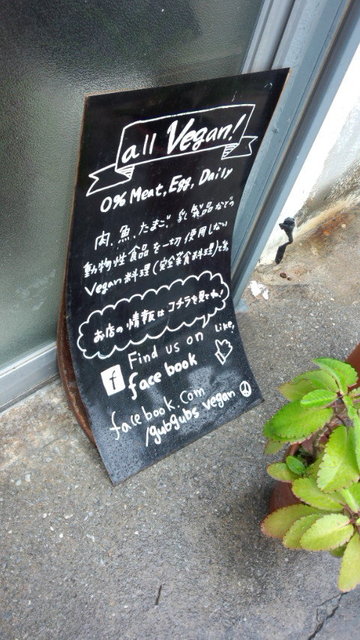 all Vegan!
0% Meat, Egg, Daily
肉、魚、たまご、乳製品などの
動物性食品を一切使用しない
Vegan料理(完全菜食料理)です
お店の情報はコチラを見てね!
Find us on
facebook
Like,
f
facebook.com
/gubgubs vegan